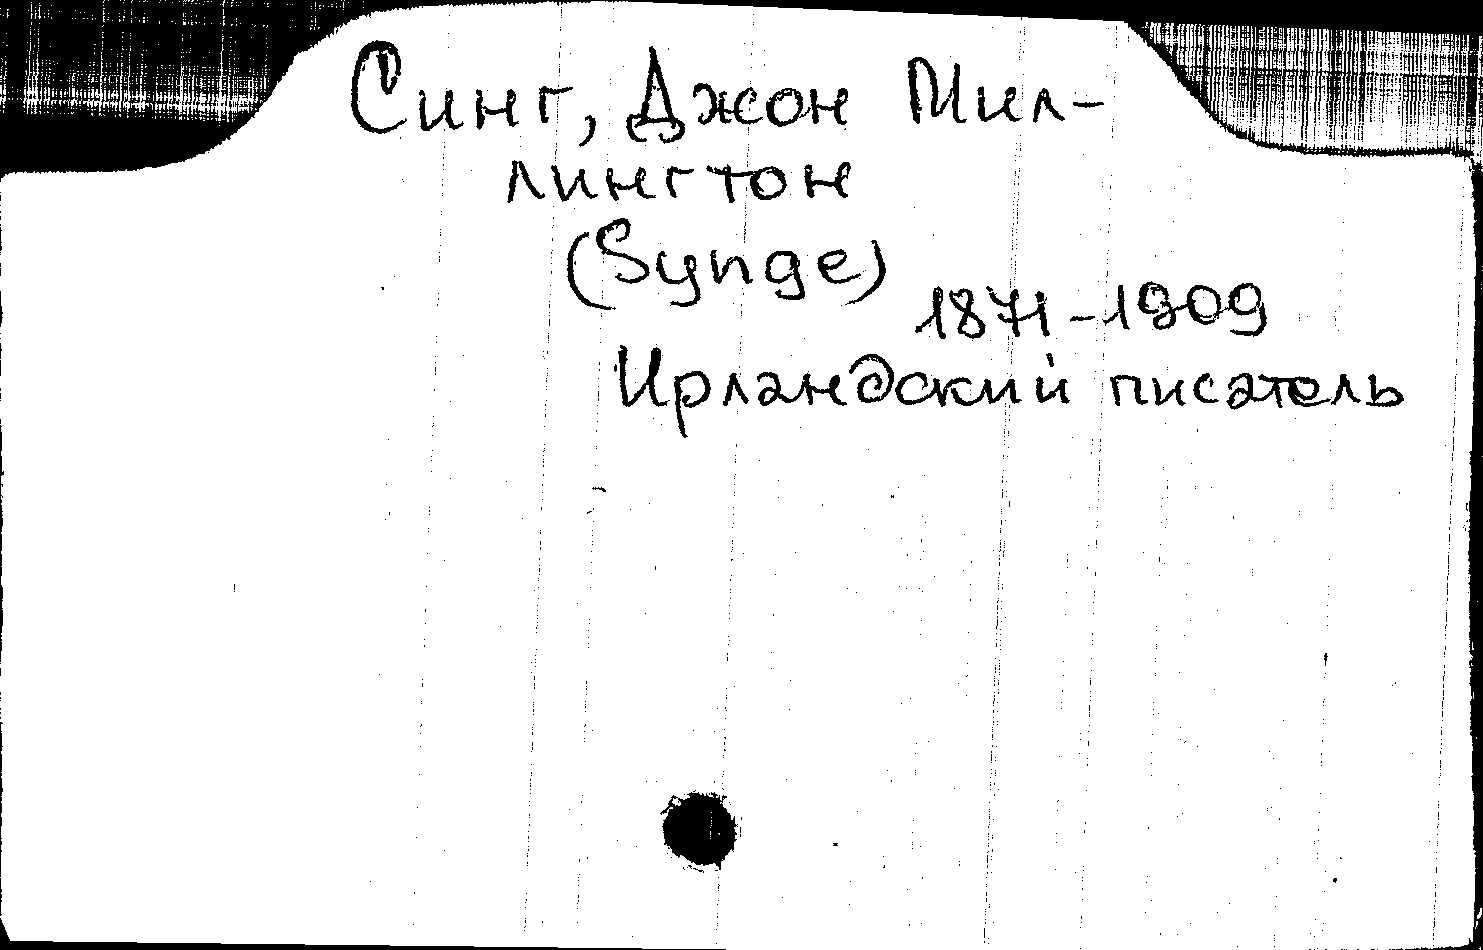 Синг, Джон Мил-
лингтон
(Synge)
1871-1909
Ирландский писатель